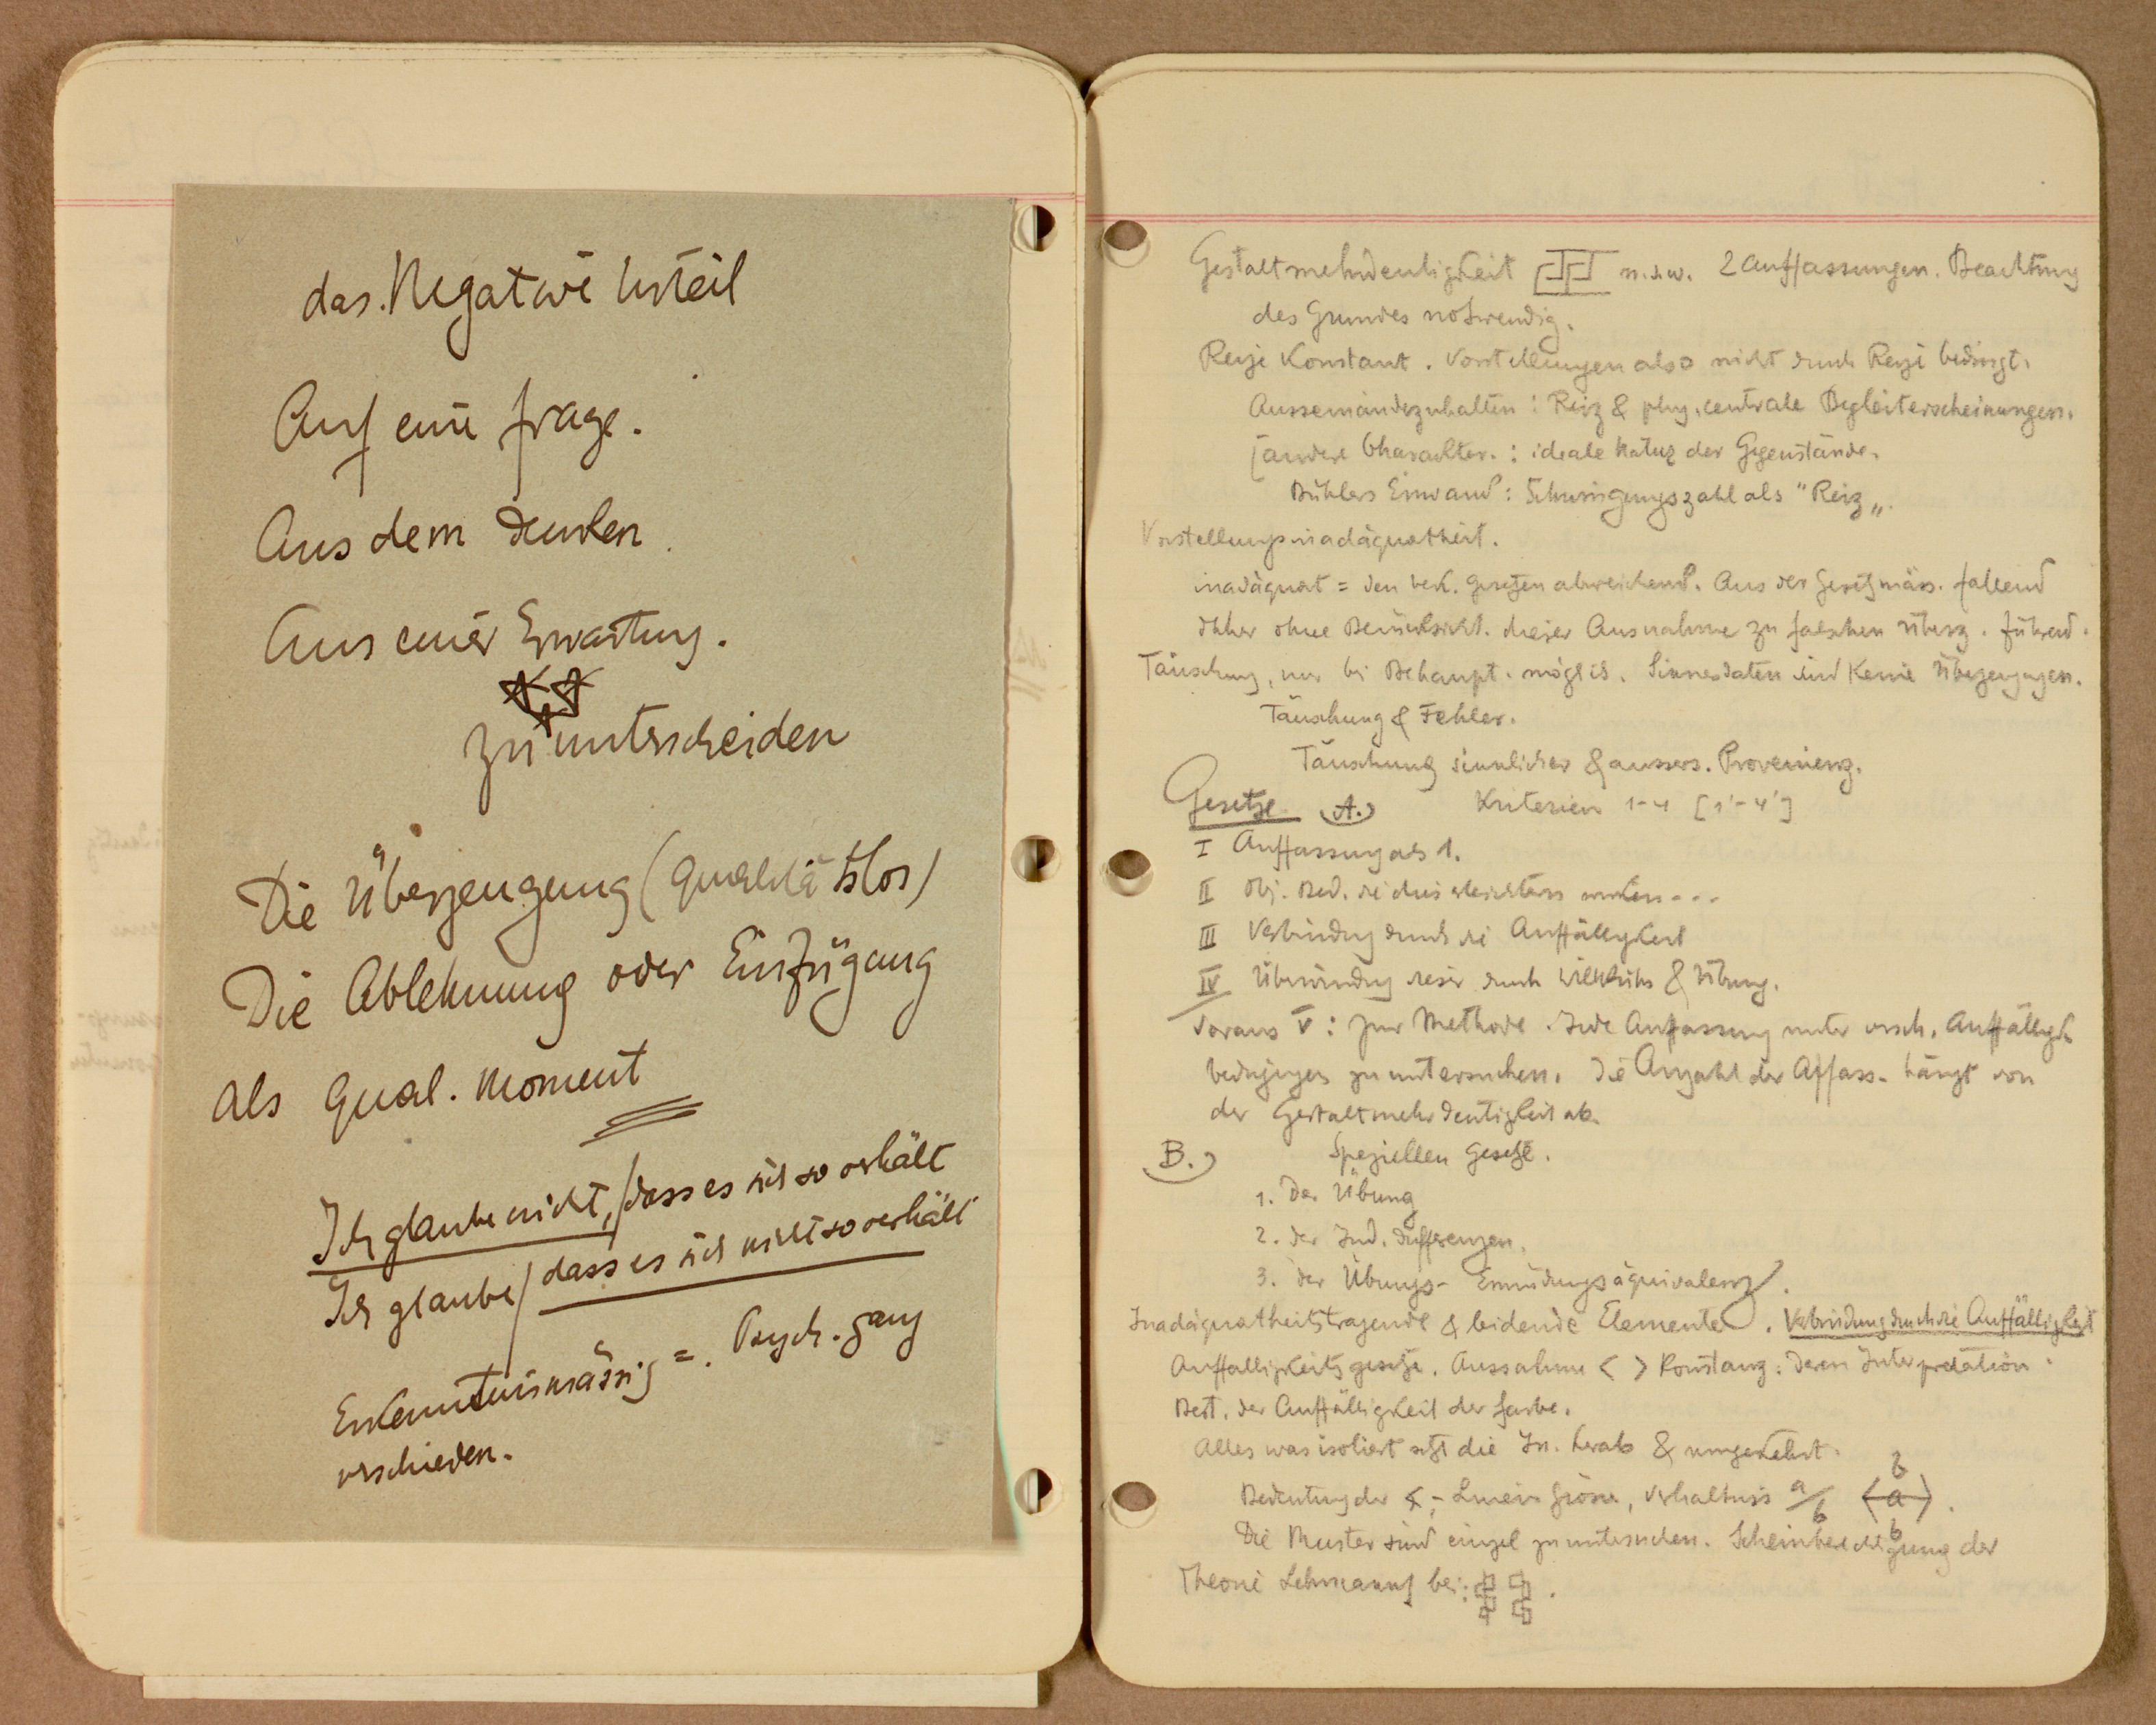 das Negative Urteil
Auf eine Frage.
Aus dem Denken.
Aus einer Erwartung.
zu unterscheiden
Die Überzeugung (qualitätslos)
Die Ablehnung oder Einfügung
als Qual. Moment
Ich glaube nicht, / dass es sich so verhält
Ich glaube / dass es sich nicht so verhält
Erkenntnismässig =. Psych. ganz
verschieden.
Gestaltmehrdeutigkeit u.s.w. 2 Auffassungen. Beachtung
des Grundes notwendig.
Reize Konstant. Vorstellungen also nicht durch Reize bedingt.
Auseinanderzuhalten: Reiz & phys. centrale Begleiterscheinungen.
[andere Charackter.: ideale Natur der Gegenstände.
Bühlers Einwand: Schwingungszahl als "Reiz".
Vorstellungsinadäquatheit.
inadäquat = den bek. Gesetzen abweichend. Aus der Gesetzmäss. fallend
daher ohne Berücksicht. dieser Ausnahme zu falschen Überz. führend.
Täuschung, nur bei Behaupt. möglich. Sinnesdaten sind Keine Überzeugungen.
Täuschung & Fehler.
Täuschung sinnlicher & aussers. Provenienz.
Gesetze A.) Kriterien 1-4 [1'-4']
I Auffassung als 1.
II Obj. Bed. die dies erleichtern wirken...
III Verbindung durch die Auffälligkeit
IV Überwindung dieser durch Willkühr & Übung.
Voraus V: Zur Methode. Jede Auffassung unter versch. Auffälligk
bedingungen zu untersuchen. Die Anzahl der Affass. hängt von
der Gestaltmehrdeutigkeit ab.
B.) Speziellen Gesetze.
1. Der Übung
2. der Ind. Differenzen.
3. der Übungs- Ermüdungsäquivalenz.
Inadäquatheitstragende & leidende Elemente. Verbindung durch die Auffälligkeit
Auffälligkeitsgesetze. Aussnahme < > Konstanz: deren Interpretation.
Best. der Auffälligkeit der Farbe.
Alles was isoliert setzt die In. herab & umgekehrt.
Bedeutung der <, - Linien Grösse, Verhältniss a/b <a> b b.
Die Muster sind einzel zu untersuchen. Scheinberechtigung der
Theorie Lehmanns bei: .